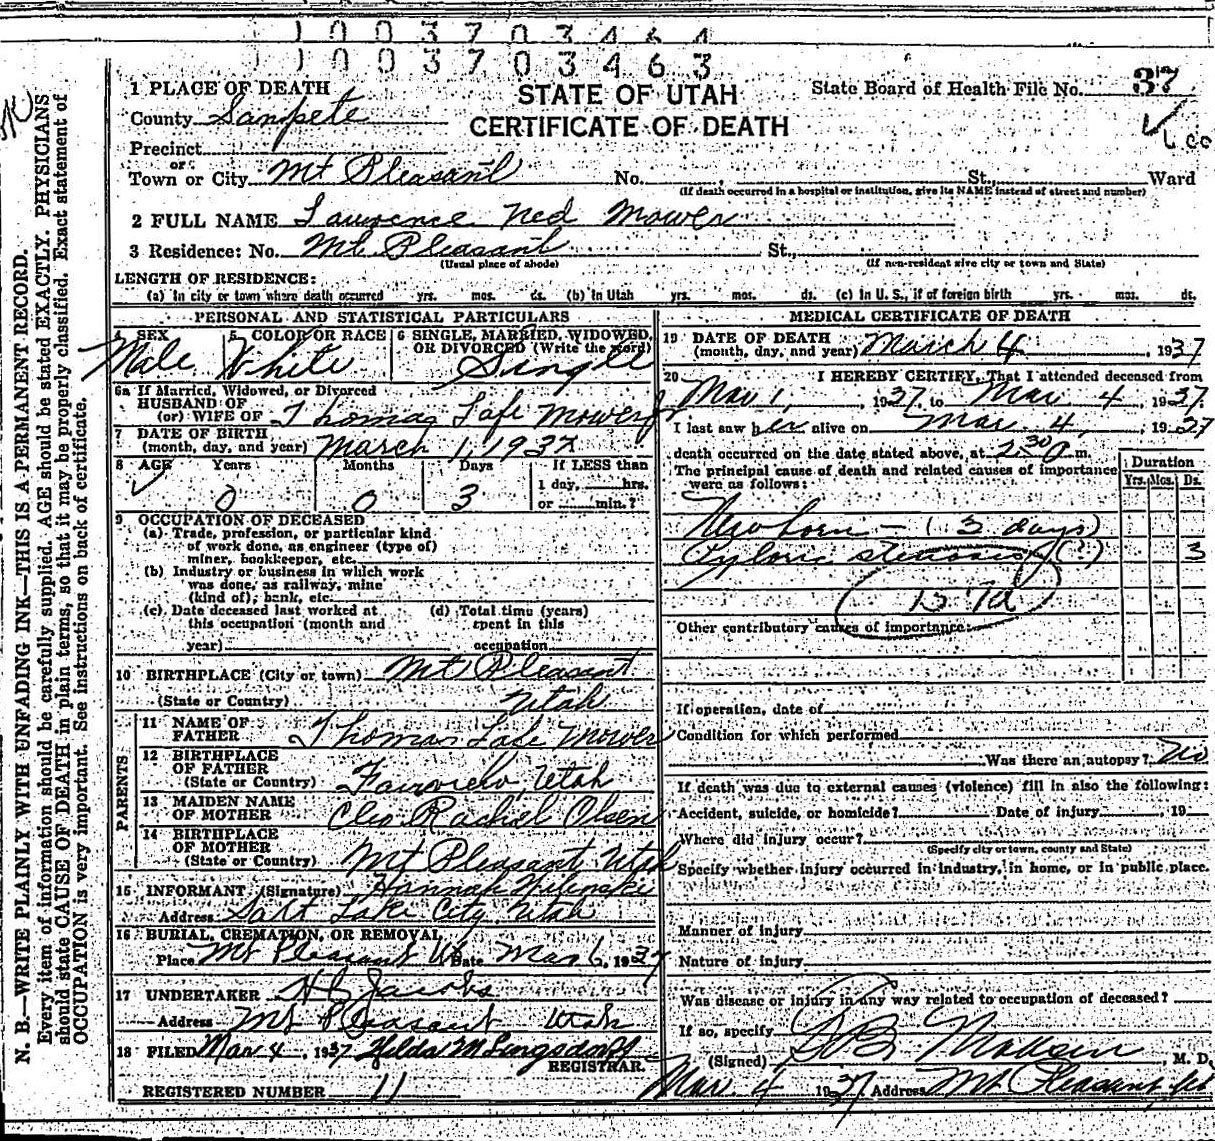 1 0 0 3 7 0 3 4 6 4
1 0 0 3 7 0 3 4 6 3
1 PLACE OF DEATH
STATE OF UTAH
State Board of Health File No. 37
County Sanpete
CERTIFICATE OF DEATH
Precinct
or
Town or City Mt Pleasant No. St., Ward
(If death occurred in a hospital or institution, give its NAME instead of street and number)
2 FULL NAME Lawrence Ned Mower
3 Residence: No. Mt. Pleasant St.,
(Usual place of abode) (If non-resident give city or town and State)
LENGTH OF RESIDENCE:
(a) In city or town where death occurred yrs. mos. ds. (b) In Utah yrs. mos. ds. (c) In U. S., if of foreign birth yrs. mos. ds.
PERSONAL AND STATISTICAL PARTICULARS
4 SEX 5 COLOR OR RACE 6 SINGLE, MARRIED, WIDOWED,
OR DIVORCED (Write the word)
Male White Single
6a If Married, Widowed, or Divorced
HUSBAND OF
(or) WIFE OF Thomas Lafe Mower
7 DATE OF BIRTH
(month, day, and year) March 1, 1937
8 AGE Years Months Days If LESS than
1 day, hrs.
0 0 3 or min.?
9 OCCUPATION OF DECEASED
(a) Trade, profession, or particular kind
of work done, as engineer (type of)
miner, bookkeeper, etc.
(b) Industry or business in which work
was done, as railway, mine
(kind of), bank, etc.
(c) Date deceased last worked at (d) Total time (years)
this occupation (month and spent in this
year) occupation
10 BIRTHPLACE (City or town) Mt Pleasant
(State or Country) Utah
PARENTS
11 NAME OF
FATHER Thomas Lafe Mower
12 BIRTHPLACE
OF FATHER
(State or Country) Fairview, Utah
13 MAIDEN NAME
OF MOTHER Cleo Rachel Olsen
14 BIRTHPLACE
OF MOTHER
(State or Country) Mt Pleasant Utah
15 INFORMANT (Signature) Hannah
Address Salt Lake City, Utah
16 BURIAL, CREMATION, OR REMOVAL
Place Mt Pleasant Ut Date Mar 6, 1937
17 UNDERTAKER Jacobs
Address Mt Pleasant Utah
18 FILED Mar 4, 1937 Hilda M Lingsdorff
REGISTRAR.
REGISTERED NUMBER 11
MEDICAL CERTIFICATE OF DEATH
19 DATE OF DEATH
(month, day, and year) March 4, 1937
20 I HEREBY CERTIFY, That I attended deceased from
Mar 1, 1937 to Mar. 4, 1937
I last saw her alive on Mar. 4, 1937
death occurred on the date stated above, at 2:30 m.
The principal cause of death and related causes of importance
were as follows:
Duration
Yrs. Mos. Ds.
Newborn - (3 days)
Pyloric stenosis (?) 3
157a
Other contributory causes of importance:
If operation, date of
Condition for which performed
Was there an autopsy? No
If death was due to external causes (violence) fill in also the following:
Accident, suicide, or homicide? Date of injury , 19
Where did injury occur?
(Specify city or town, county and State)
Specify whether injury occurred in industry, in home, or in public place.
Manner of injury
Nature of injury
Was disease or injury in any way related to occupation of deceased?
If so, specify
(Signed) Madsen, M. D.
Mar 4 1937 Address Mt Pleasant, Ut
N. B.—WRITE PLAINLY WITH UNFADING INK—THIS IS A PERMANENT RECORD.
Every item of information should be carefully supplied. AGE should be stated EXACTLY. PHYSICIANS
should state CAUSE OF DEATH in plain terms, so that it may be properly classified. Exact statement of
OCCUPATION is very important. See instructions on back of certificate.